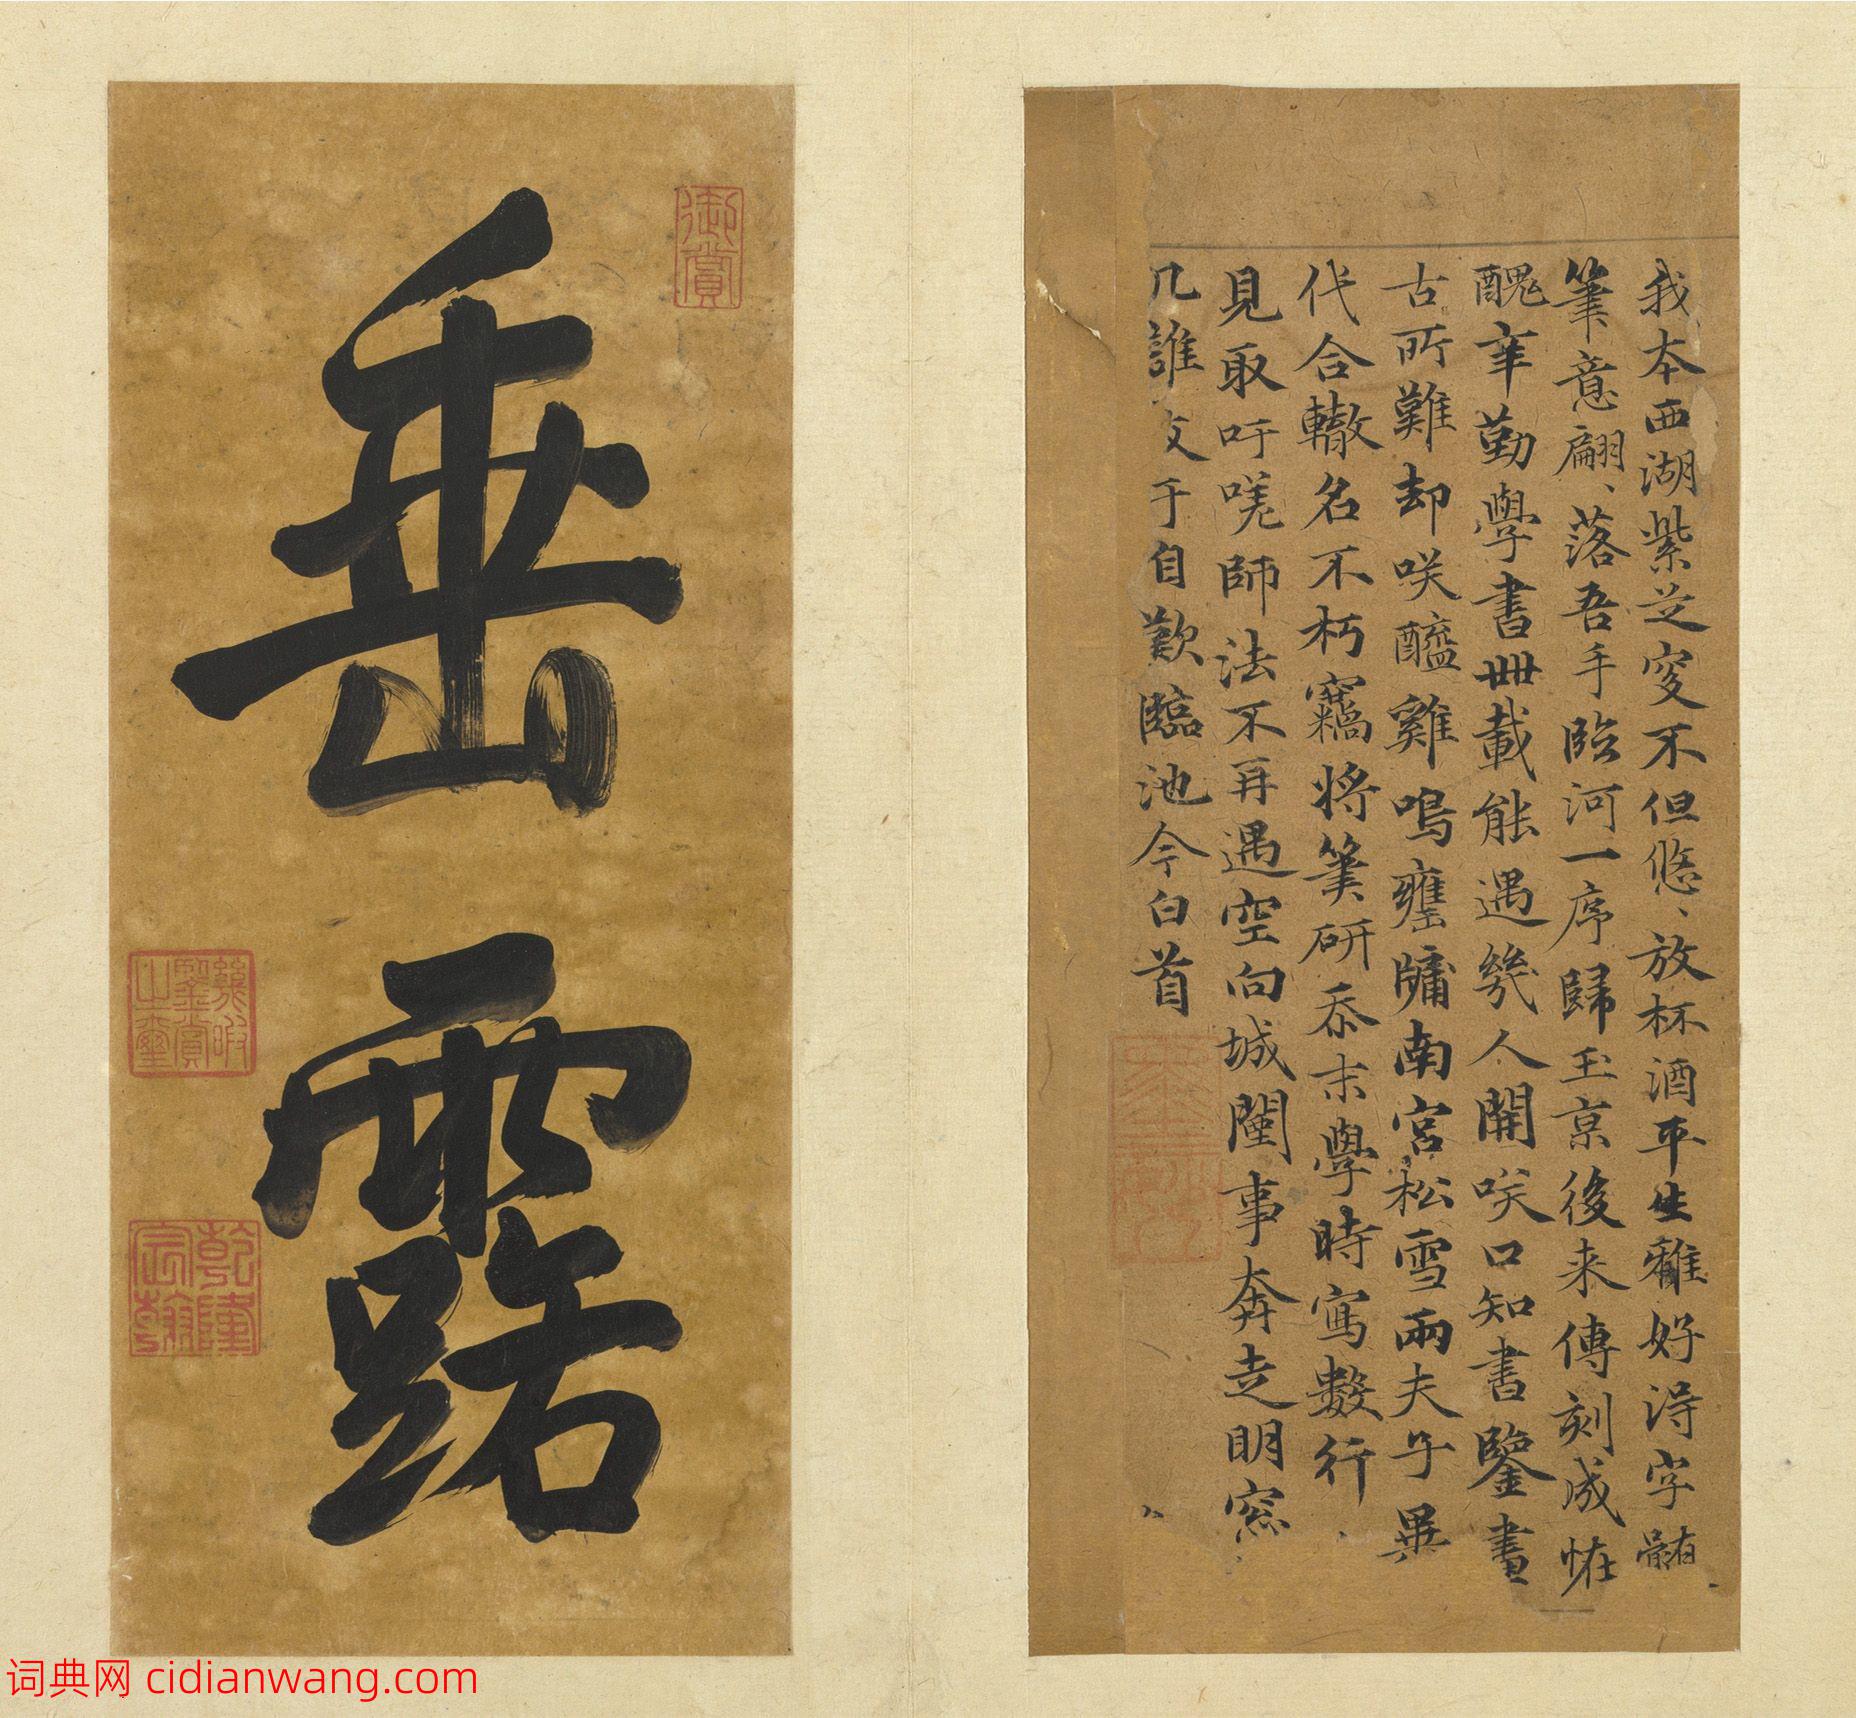 我本西湖紫芝叟不但悠、放杯酒平生雅好淂字髓
筆意翩、落吾手臨河一序歸玉京後来傳刻成恠
醜辛勤學書卌載能遇幾人開咲口知書鑒書
古所難却咲醯雞鳴甕牖南宮松雪兩夫子異
代合轍名不朽竊將筆研忝末學時寫數行
見取吁嗟師法不再遇空向城闉事奔走明窓
几誰友于自歎臨池今白首
垂露
御賞
乾隆宸翰
词典网 cidianwang.com